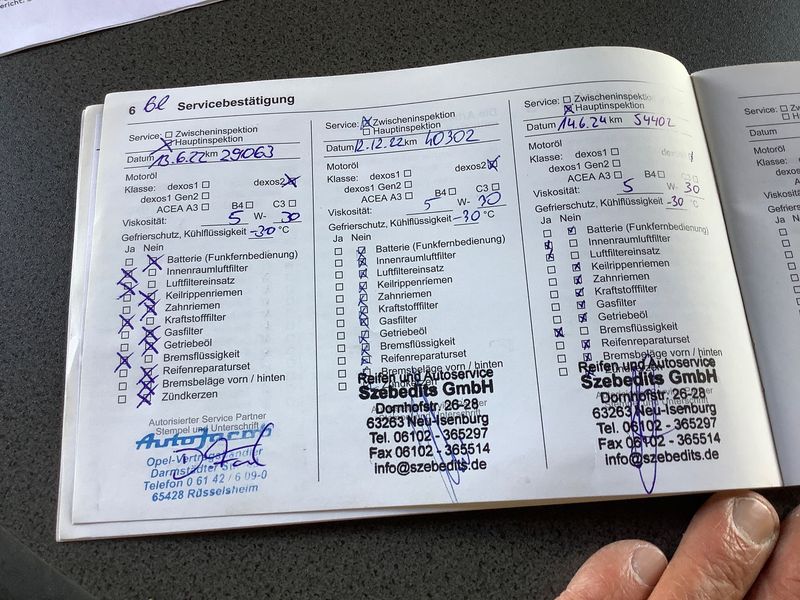 6 Servicebestätigung
Service: Zwischeninspektion
Hauptinspektion
Datum 13.6.22 km 29063
Motoröl
Klasse: dexos1 dexos2
dexos1 Gen2
ACEA A3 B4 C3
Viskosität: 5 W- 30
Gefrierschutz, Kühlflüssigkeit -30 °C
Ja Nein
Batterie (Funkfernbedienung)
Innenraumluftfilter
Luftfiltereinsatz
Keilrippenriemen
Zahnriemen
Kraftstofffilter
Gasfilter
Getriebeöl
Bremsflüssigkeit
Reifenreparaturset
Bremsbeläge vorn / hinten
Zündkerzen
Autorisierter Service Partner
Stempel und Unterschrift
Opel-Vertragshändler
Darmstädter
Telefon 0 61 42 / 6 09-0
65428 Rüsselsheim
Service: Zwischeninspektion
Hauptinspektion
Datum 12.12.22 km 40302
Motoröl
Klasse: dexos1 dexos2
dexos1 Gen2
ACEA A3 B4 C3
Viskosität: 5 W- 30
Gefrierschutz, Kühlflüssigkeit -30 °C
Ja Nein
Batterie (Funkfernbedienung)
Innenraumluftfilter
Luftfiltereinsatz
Keilrippenriemen
Zahnriemen
Kraftstofffilter
Gasfilter
Getriebeöl
Bremsflüssigkeit
Reifenreparaturset
Bremsbeläge vorn / hinten
Zündkerzen
Reifen und Autoservice
Szebedits GmbH
Dornhofstr. 26-28
63263 Neu-Isenburg
Tel. 06102 - 365297
Fax 06102 - 365514
info@szebedits.de
Service: Zwischeninspektion
Hauptinspektion
Datum 14.6.24 km 54402
Motoröl
Klasse: dexos1
dexos1 Gen2
ACEA A3 B4 C3
Viskosität: 5 W- 30
Gefrierschutz, Kühlflüssigkeit -30 °C
Ja Nein
Batterie (Funkfernbedienung)
Innenraumluftfilter
Luftfiltereinsatz
Keilrippenriemen
Zahnriemen
Kraftstofffilter
Gasfilter
Getriebeöl
Bremsflüssigkeit
Reifenreparaturset
Bremsbeläge vorn / hinten
Reifen und Autoservice
Szebedits GmbH
Dornhofstr. 26-28
63263 Neu-Isenburg
Tel. 06102 - 365297
Fax 06102 - 365514
info@szebedits.de
Service:
Datum
Motoröl
Klasse:
Viskosität:
Gefrierschutz
Ja Nein